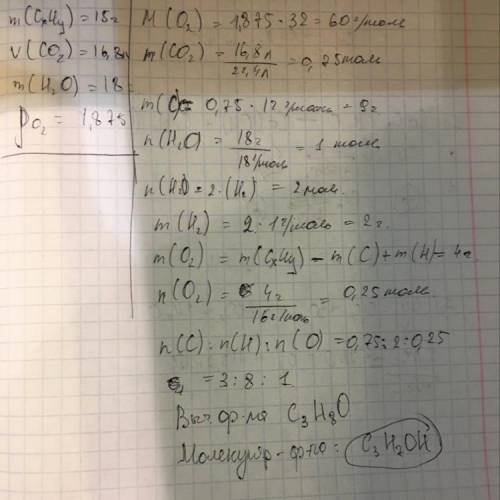 m(CxHy) = 15г
V(CO₂) = 16,8л
m(H₂O) = 18
D O₂ = 1,875
M(O₂) = 1,875 · 32 = 60 г/моль
m(CO₂) = 16,8л / 22,4л = 0,75 моль
m(C) = 0,75 · 12 г/моль = 9г
n(H₂O) = 18г / 18г/моль = 1 моль
n(H) = 2 · (H₂) = 2 мол.
m(H₂) = 2 · 1 г/моль = 2г.
m(O₂) = m(CxHy) - m(C) + m(H) = 4г
n(O₂) = 4г / 16г/моль = 0,25 моль
n(C) : n(H) : n(O) = 0,75 : 2 : 0,25
= 3 : 8 : 1
ф-ла C₃H₈O
Молекуляр - ф-ла : C₃H₇OH